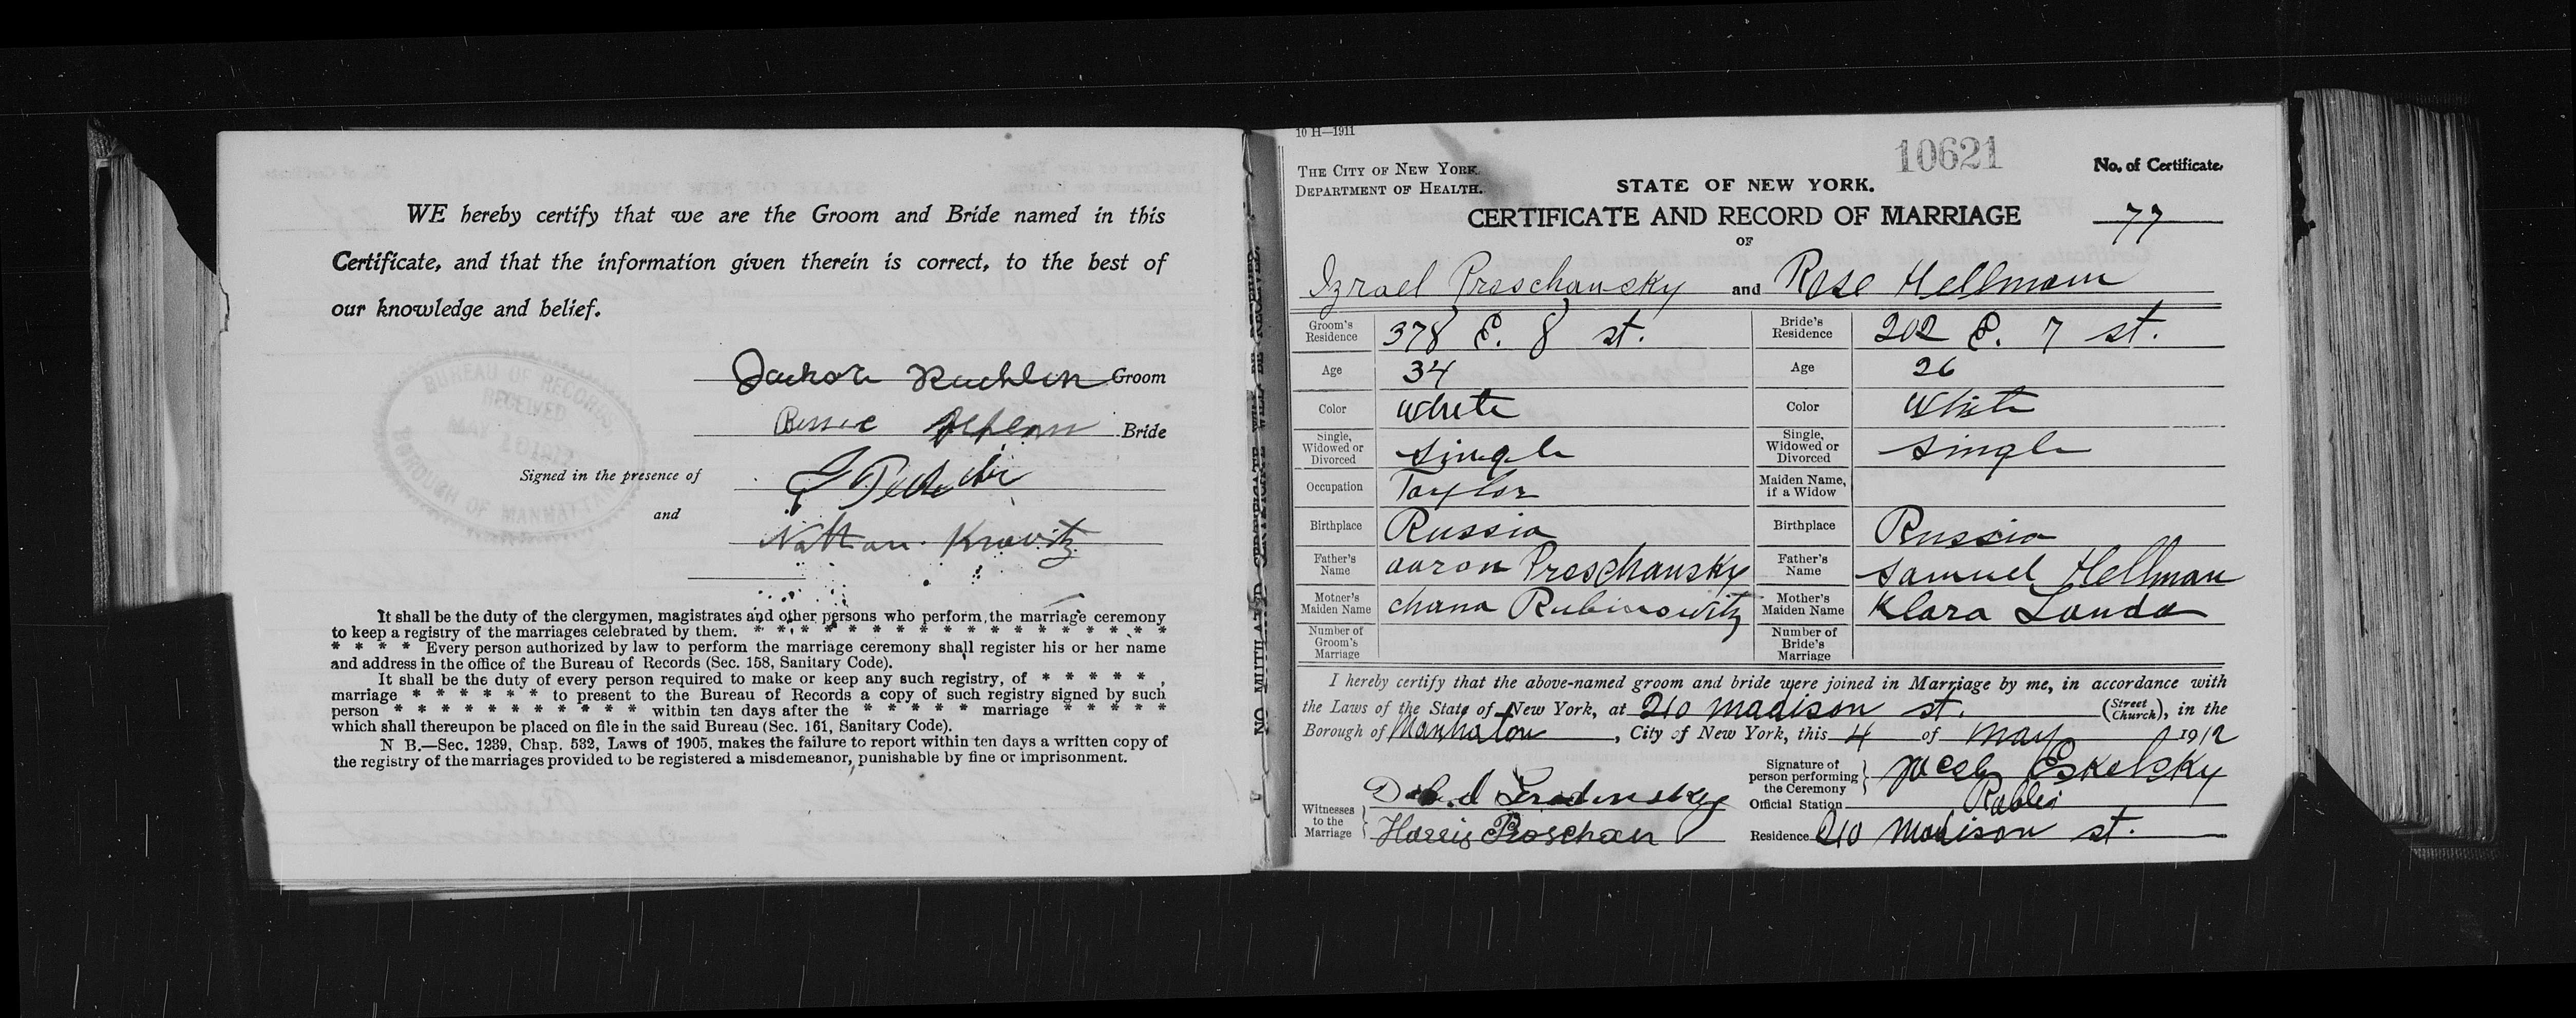 WE hereby certify that we are the Groom and Bride named in this
Certificate, and that the information given therein is correct, to the best of
our knowledge and belief.
Groom
Bride
Signed in the presence of
and
Nathan Krovitz
BUREAU OF RECORDS,
RECEIVED
MAY
BOROUGH OF MANHATTAN
It shall be the duty of the clergymen, magistrates and other persons who perform the marriage ceremony
to keep a registry of the marriages celebrated by them. * * * * * * * * * * * * * * * * * *
* * * * Every person authorized by law to perform the marriage ceremony shall register his or her name
and address in the office of the Bureau of Records (Sec. 158, Sanitary Code).
It shall be the duty of every person required to make or keep any such registry, of * * * * * ,
marriage * * * * * * to present to the Bureau of Records a copy of such registry signed by such
person * * * * * * * * * * * within ten days after the * * * * * marriage * * * * *
which shall thereupon be placed on file in the said Bureau (Sec. 161, Sanitary Code).
N B.—Sec. 1239, Chap. 532, Laws of 1905, makes the failure to report within ten days a written copy of
the registry of the marriages provided to be registered a misdemeanor, punishable by fine or imprisonment.
10 H—1911
10621
No. of Certificate.
THE CITY OF NEW YORK.
DEPARTMENT OF HEALTH.
STATE OF NEW YORK.
CERTIFICATE AND RECORD OF MARRIAGE
77
OF
Izrael Preschansky and Rose Hellman
Groom's Residence 378 E. 8 st. Bride's Residence 202 E. 7 st.
Age 34 Age 26
Color White Color White
Single, Widowed or Divorced single Single, Widowed or Divorced single
Occupation Taylor Maiden Name, if a Widow
Birthplace Russia Birthplace Russia
Father's Name aaron Preschansky Father's Name Samuel Hellman
Mother's Maiden Name chana Rubinowitz Mother's Maiden Name Klara Landa
Number of Groom's Marriage Number of Bride's Marriage
I hereby certify that the above-named groom and bride were joined in Marriage by me, in accordance with
the Laws of the State of New York, at 210 madison st. (Street Church), in the
Borough of Manhatan, City of New York, this 4 of May 1912
Signature of person performing the Ceremony Jacob Eskolsky
Official Station Rabbi
Witnesses to the Marriage
Harris Proschan
Residence 210 Madison st.